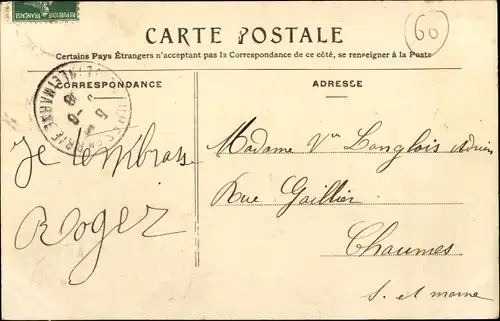 REPUBLIQUE FRANÇAISE
60
CARTE POSTALE
Certains Pays Étrangers n'acceptant pas la Correspondance de ce côté, se renseigner à la Poste
CORRESPONDANCE
ADRESSE
Je t'embrasse
Roger
Madame Vve Langlois Adrien
Rue Gaillier
Chaumes
S. et marne